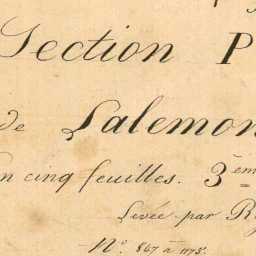 Section P
de Lalemon
n cinq feuilles. 3ème
Levée par R
N.º 867 à 1175.